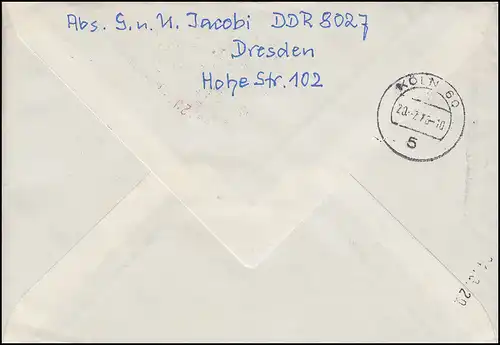 Abs. G. u. U. Jacobi DDR 8027
Dresden
Hohe Str. 102
KÖLN 60
5